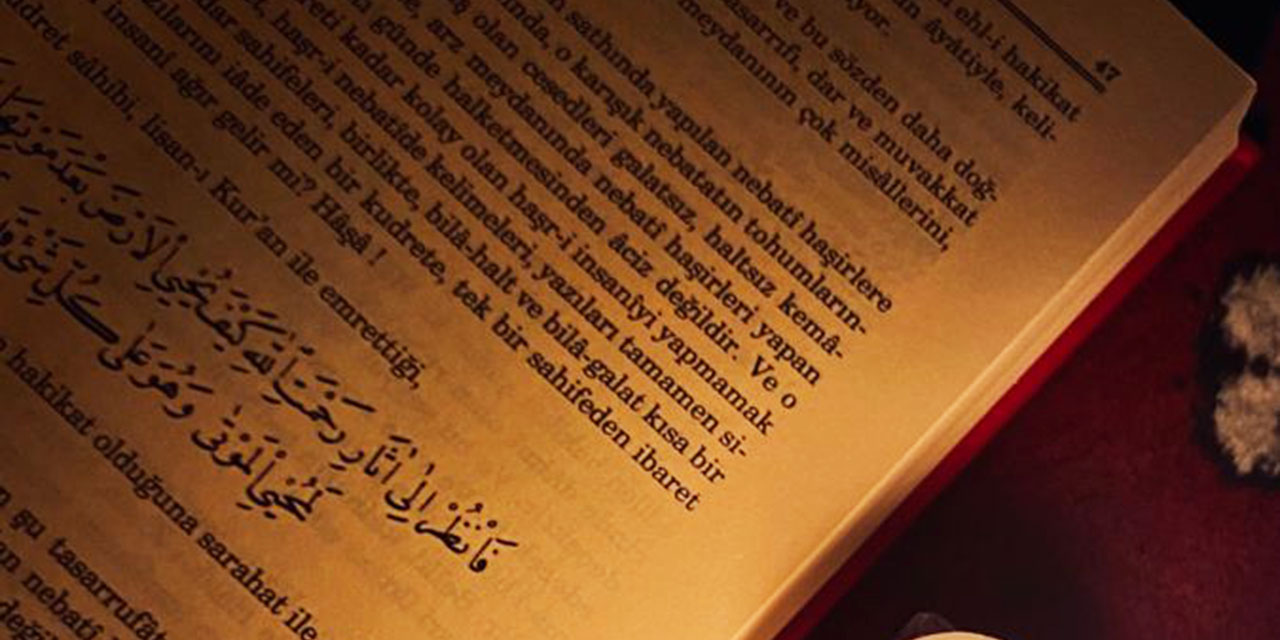 47
ehl-i hakikat
âyâtiyle, keli-
ve bu sözden daha doğ-
dar ve muvakkat
meydanının çok misâllerini,
sathında yapılan nebatî haşirlere
o karışık nebatatın tohumların-
olan cesedleri galatsız, haltsız kemâ-
arz meydanında nebatî haşirleri yapan
günde halketmesinden âciz değildir. Ve o
kadar kolay olan haşr-i insanîyi yapmamak
haşr-i nebatîde kelimeleri, yazıları tamamen si-
sahifeleri, birlikte, bilâ-halt ve bilâ-galat kısa bir
iâde eden bir kudrete, tek bir sahifeden ibaret
insanî ağır gelir mi? Hâşâ !
sâhibi, lisan-ı Kur'an ile emrettiği,
فَانْظُرْ اِلٰٓى اٰثَارِ رَحْمَتِ اللّٰهِ كَيْفَ يُحْيِى الْاَرْضَ بَعْدَ مَوْتِهَا
لَمُحْيِى الْمَوْتٰى وَهُوَ عَلٰى كُلِّ شَيْءٍ
hakikat olduğuna sarahat ile
şu tasarrufât
nebatî